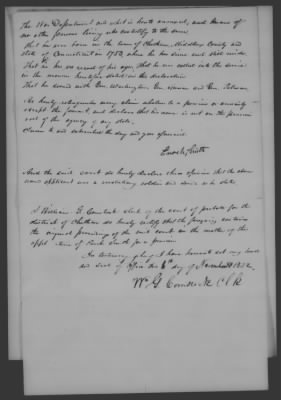 The War Department and what is hereto annexed, and knows of
no other persons living who can testify to the same
That he was born in the town of Chatham, Middlesex County and
State of Connecticut in 1752, where he has since and still resides
That he has no record of his age, that he was called into the service
in the manner heretofore stated in his declaration
That he served with Gen. Washington Gen. and Gen. Putnam
He hereby relinquishes every claim whatever to a pension or annuity
except the present, and declares that his name is not on the pension
roll of the agency of any state.
Sworn to and subscribed the day and year aforesaid
Enoch Smith
And the said court do hereby declare their opinion that the above
named applicant was a revolutionary soldier and served as he states
I William G. Comstock clerk of the court of probate for the
district of Chatham do hereby certify that the foregoing contains
the original proceedings of the said court in the matter of the
application of Enoch Smith for a pension
In testimony whereof I have hereunto set my hand
and seal of office this 6th day of November 1832.
Wm G Comstock Clk